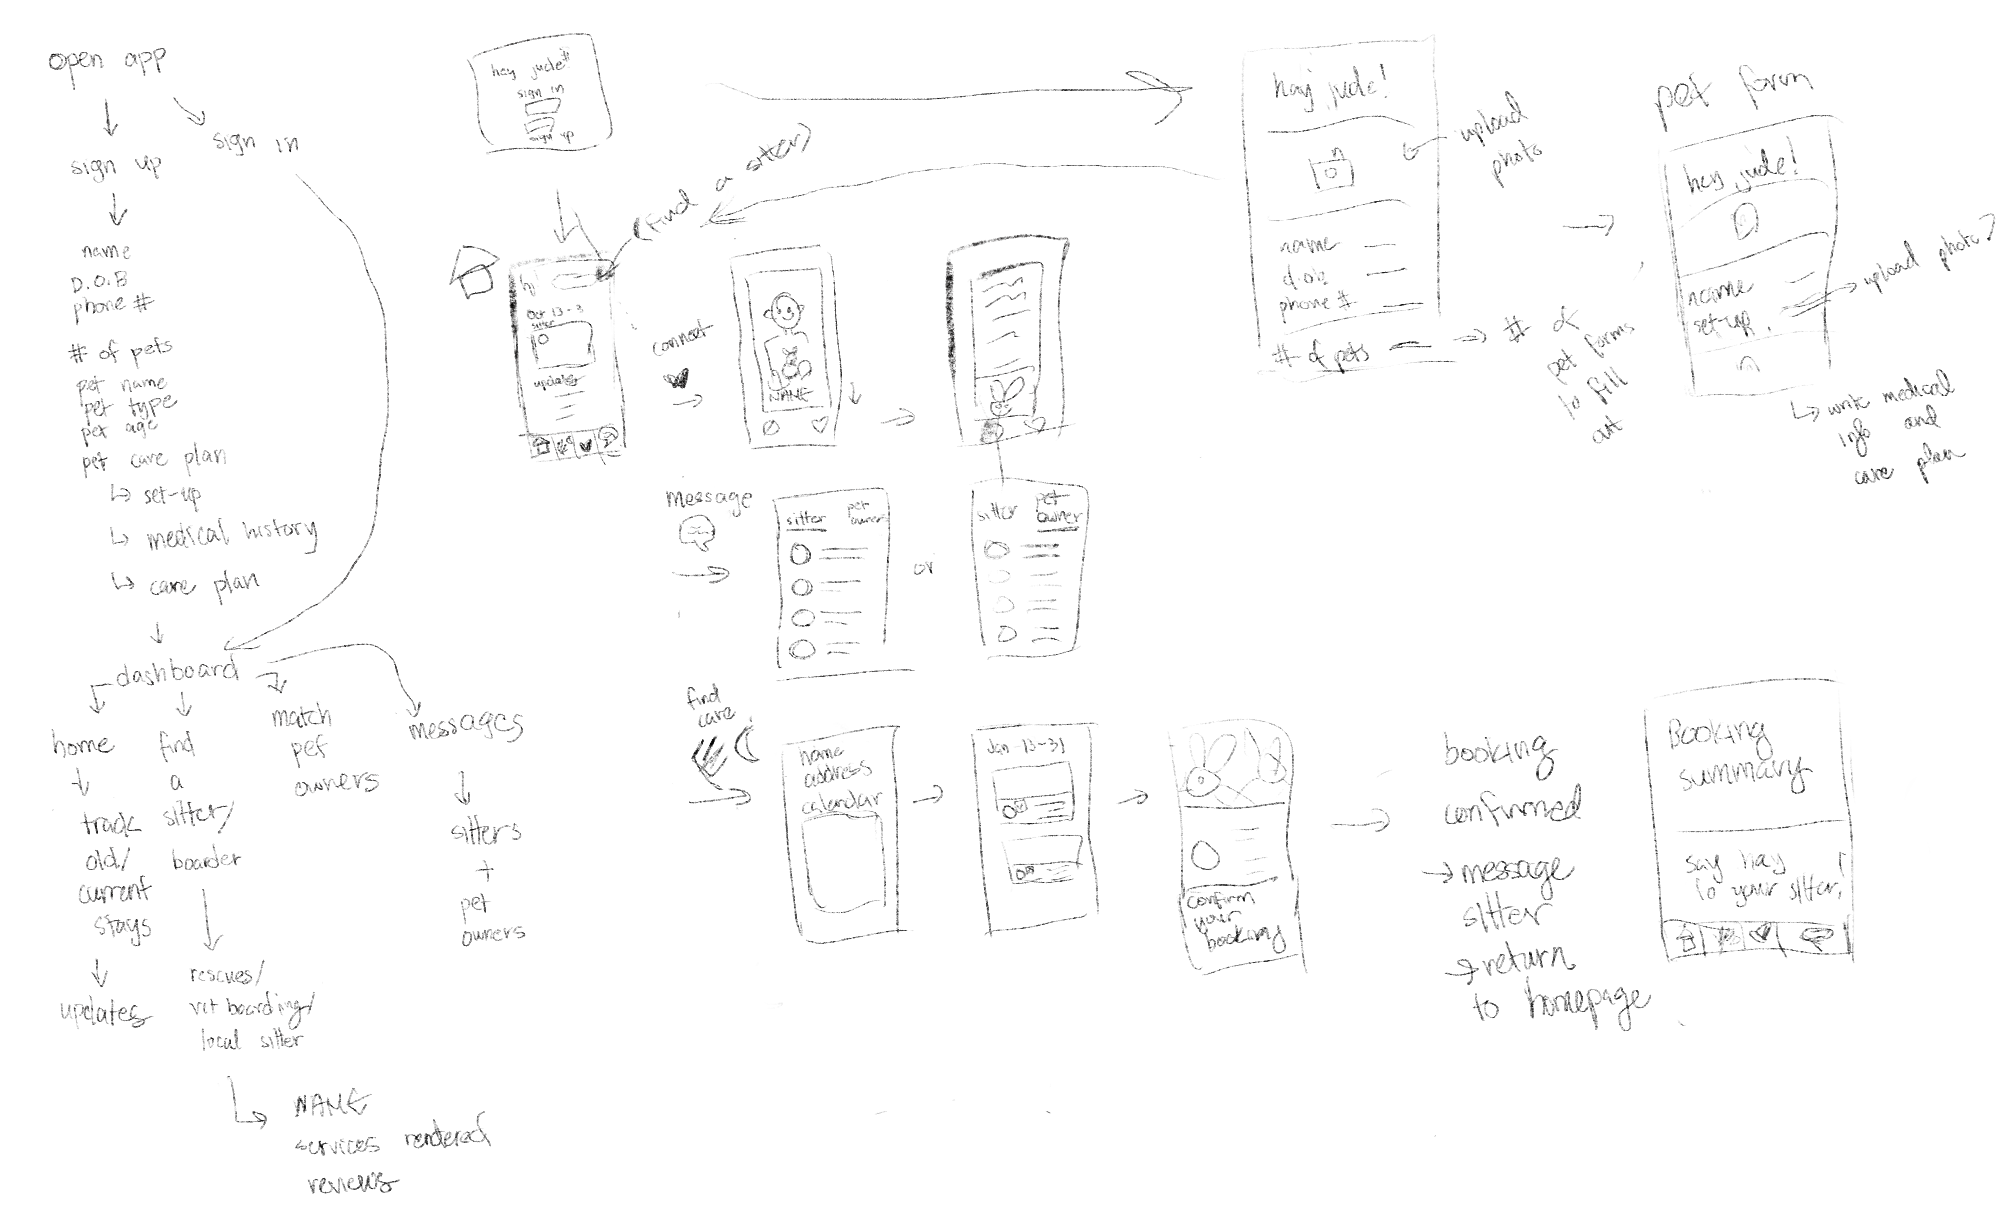 open app
sign up
sign in
name
D.O.B
phone #
# of pets
pet name
pet type
pet age
pet care plan
set-up
medical history
care plan
dashboard
home
track
old/
current
stays
updates
find
a
sitter/
boarder
rescues/
vet boarding/
local sitter
NAME
services rendered
reviews
match
pet
owners
messages
sitters
+
pet
owners
hey jude!
sign in
sign up
(find a sitter)
hi
Oct 13-3
sitter
updates
connect
NAME
message
sitter
pet
owner
or
sitter
pet
owner
find
care
name
address
calendar
Jan 13-31
confirm
your
booking
booking
confirmed
message
sitter
return
to homepage
Booking
summary
say hay
to your sitter!
hay jude!
upload
photo
name
d.o.b
phone #
# of pets
# of
pet forms
to fill
out
pet form
hey jude!
name
set-up
upload photo?
write medical
info and
care plan